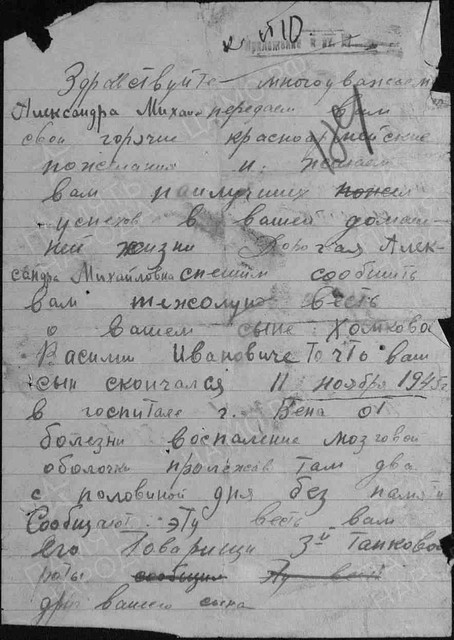 к №10
Приложение к вх. №
Здравствуйте многоуважаем
Александра Михай передаем вам
свои горячие красноармейские
пожелания и желаем
вам наилучших
успехов в вашей домаш-
ней жизни Дорогая Алек-
сандра Михайловна спешим сообщить
вам тежолую весть
о вашем сыне Хомкове
Василии Ивановиче то что ваш
сын скончался 11 ноября 1945г
в госпитале г. Вена от
болезни воспаление мозговой
оболочки пролежав там два
с половиной дня без памяти
Сообщают эту весть вам
его Товарищи 3й танковой
роты сообщим эту весть
друз вашего сына